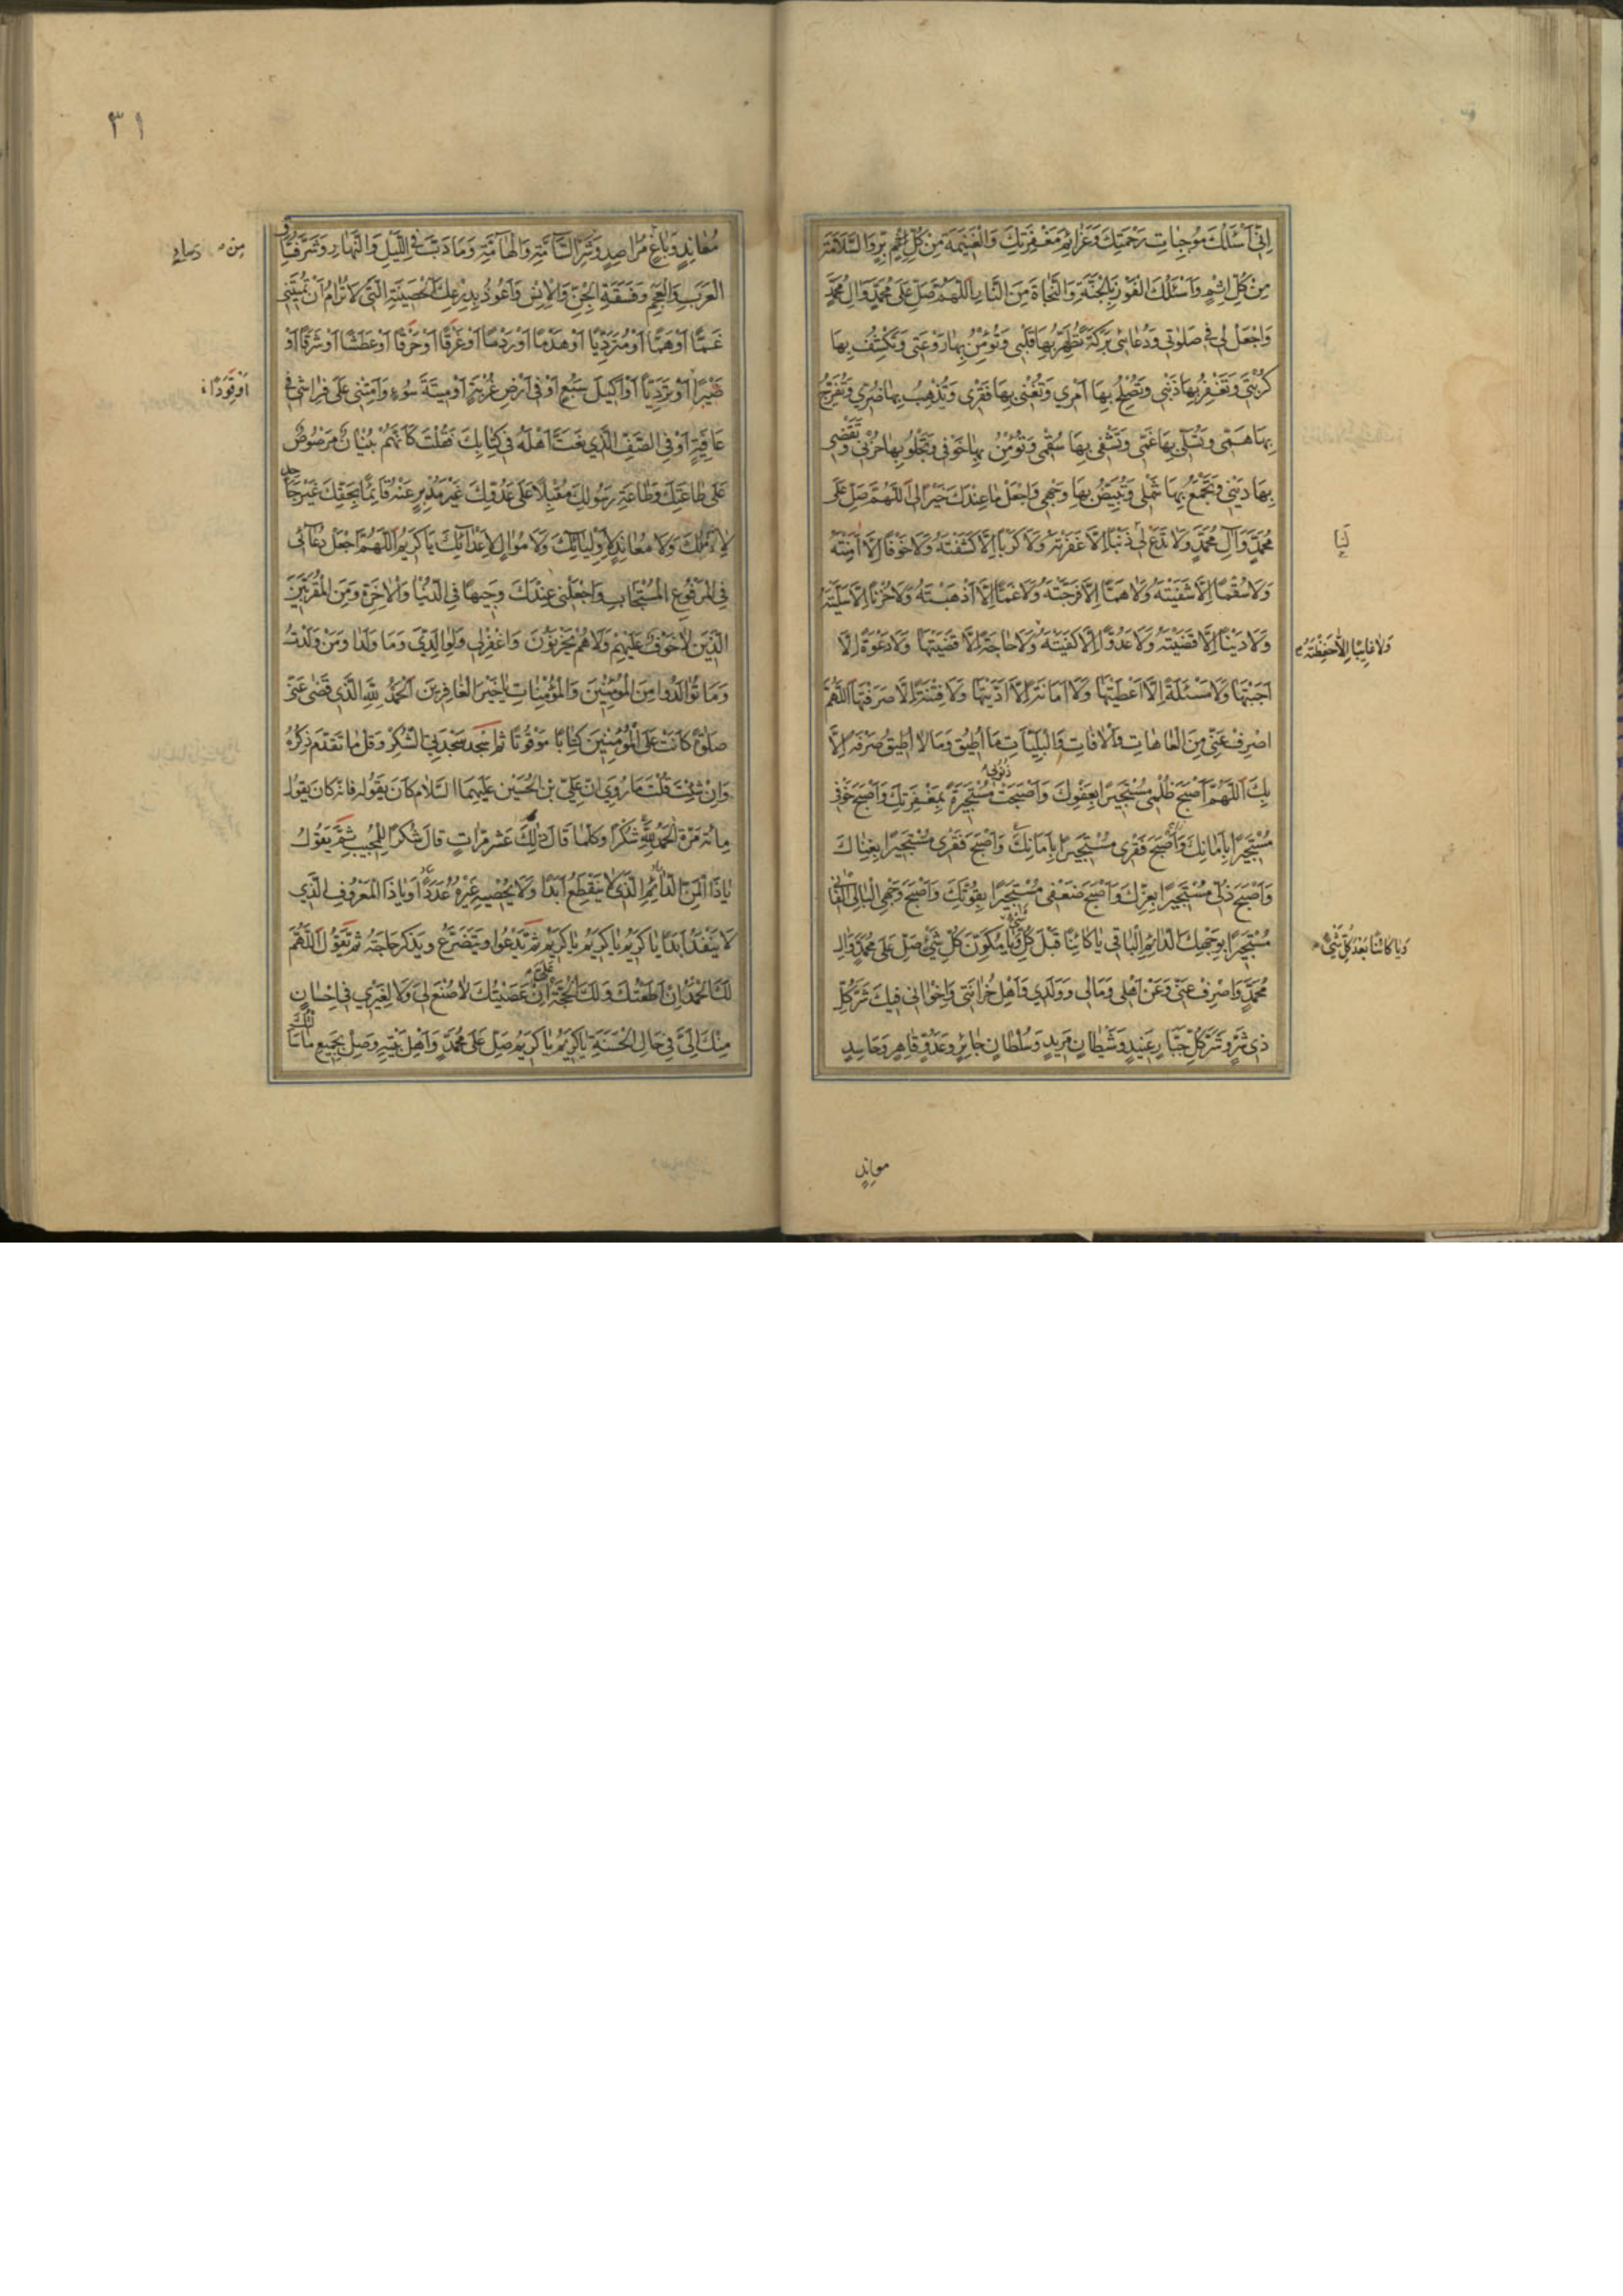 اِنّي اَسْئَلُكَ مُوجِباتِ رَحْمَتِكَ وَعَزائِمَ مَغْفِرَتِكَ وَالْغَنيمَةَ مِنْ كُلِّ بِرٍّ وَالسَّلامَةَ
مِنْ كُلِّ اِثْمٍ وَاَسْئَلُكَ الْفَوْزَ بِالْجَنَّةِ وَالنَّجاةَ مِنَ النّارِ اَللّهُمَّ صَلِّ عَلى مُحَمَّدٍ وَالِ مُحَمَّدٍ
وَاجْعَلْ لي في صَلوتي وَدُعائي بَرَكَةً تُطَهِّرُ بِها قَلْبي وَتُؤْمِنُ بِها رَوْعَتي وَتَكْشِفُ بِها
كُرْبَتي وَتَغْفِرُ بِها ذَنْبي وَتُصْلِحُ بِها اَمْري وَتُغْني بِها فَقْري وَتُذْهِبُ بِها ضُرّي وَتُفَرِّجُ
بِها هَمّي وَتُسَلّي بِها غَمّي وَتَشْفي بِها سُقْمي وَتُؤْمِنُ بِها خَوْفي وَتَجْلُو بِها حُزْني وَتَقْضي
بِها دَيْني وَتَجْمَعُ بِها شَمْلي وَتُبَيِّضُ بِها وَجْهي وَاجْعَلْ ما عِنْدَكَ خَيْرًا لي اَللّهُمَّ صَلِّ عَلى
مُحَمَّدٍ وَآلِ مُحَمَّدٍ وَلا تَدَعْ لي ذَنْبًا اِلّا غَفَرْتَهُ وَلا كَرْبًا اِلّا كَشَفْتَهُ وَلا خَوْفًا اِلّا آمَنْتَهُ
وَلا سُقْمًا اِلّا شَفَيْتَهُ وَلا هَمًّا اِلّا فَرَّجْتَهُ وَلا غَمًّا اِلّا اَذْهَبْتَهُ وَلا حُزْنًا اِلّا سَلَّيْتَهُ
وَلا دَيْنًا اِلّا قَضَيْتَهُ وَلا عَدُوًّا اِلّا كَفَيْتَهُ وَلا حاجَةً اِلّا قَضَيْتَها وَلا دَعْوَةً اِلّا
وَلا غايِبًا اِلّا حَفِظْتَهُ
اَجَبْتَها وَلا مَسْئَلَةً اِلّا اَعْطَيْتَها وَلا اَمانَةً اِلّا اَدَّيْتَها وَلا فِتْنَةً اِلّا صَرَفْتَها اَللّهُمَّ
اصْرِفْ عَنّي مِنَ الْعاهاتِ وَالْافاتِ وَالْبَلِيّاتِ ما اُطيقُ وَما لا اُطيقُ صَرْفَهُ اِلّا
بِكَ اَللّهُمَّ اَصْبَحَ ظُلْمي مُسْتَجيرًا بِعَفْوِكَ وَاَصْبَحَتْ ذُنُوبي مُسْتَجيرَةً بِمَغْفِرَتِكَ وَاَصْبَحَ خَوْفي
مُسْتَجيرًا بِاَمانِكَ وَاَصْبَحَ فَقْري مُسْتَجيرًا بِاَمانِكَ وَاَصْبَحَ فَقْري مُسْتَجيرًا بِغِناكَ
وَاَصْبَحَ ذُلّي مُسْتَجيرًا بِعِزِّكَ وَاَصْبَحَ ضَعْفي مُسْتَجيرًا بِقُوَّتِكَ وَاَصْبَحَ وَجْهِيَ الْبالي الْفاني
مُسْتَجيرًا بِوَجْهِكَ الدّائِمِ الْباقي يا كائِنًا قَبْلَ كُلِّ شَيْءٍ وَيا مُكَوِّنَ كُلِّ شَيْءٍ صَلِّ عَلى مُحَمَّدٍ وَالِ
وَيا كائِنًا بَعْدَ كُلِّ شَيْءٍ
مُحَمَّدٍ وَاصْرِفْ عَنّي وَعَنْ اَهْلي وَمالي وَوَلَدي وَاَهْلِ حُزانَتي وَاِخْواني فيكَ شَرَّ كُلِّ
ذي شَرٍّ وَشَرَّ كُلِّ جَبّارٍ عَنيدٍ وَشَيْطانٍ مَريدٍ وَسُلْطانٍ جائِرٍ وَعَدُوٍّ قاهِرٍ وَحاسِدٍ
معاندٍ
٣١
مُعانِدٍ وَباغٍ مُراصِدٍ وَشَرِّ السّامَّةِ وَالْهامَّةِ وَما دَبَّ فِي اللَّيْلِ وَالنَّهارِ وَشَرِّ فُسّاقِ
مِن
الْعَرَبِ وَالْعَجَمِ وَفَسَقَةِ الْجِنِّ وَالْاِنْسِ وَاَعُوذُ بِدِرْعِكَ الْحَصينَةِ الَّتي لا تُرامُ اَنْ تُميتَني
غَمًّا اَوْ هَمًّا اَوْ مُتَرَدِّيًا اَوْ هَدْمًا اَوْ رَدْمًا اَوْ غَرَقًا اَوْ حَرَقًا اَوْ عَطَشًا اَوْ شَرَقًا اَوْ
صَبْرًا اَوْ تَرَدِّيًا اَوْ اَكيلَ سَبُعٍ اَوْ في اَرْضِ غُرْبَةٍ اَوْ ميتَةَ سُوءٍ وَاَمِتْني عَلى فِراشي في
اَوْ قَوَدًا
عافِيَةٍ اَوْ فِي الصَّفِّ الَّذي نَعَتَّ اَهْلَهُ في كِتابِكَ فَقُلْتَ كَاَنَّهُمْ بُنْيانٌ مَرْصُوصٌ
عَلى طاعَتِكَ وَطاعَةِ رَسُولِكَ مُقْبِلًا عَلى عَدُوِّكَ غَيْرَ مُدْبِرٍ عَنْهُ قائِمًا بِحَقِّكَ غَيْرَ جاحِدٍ
لِآلائِكَ وَلا مُعانِدٍ لِاَوْلِيائِكَ وَلا مُوالٍ لِاَعْدائِكَ يا كَريمُ اَللّهُمَّ اجْعَلْ دُعائي
فِي الْمَرْفُوعِ الْمُسْتَجابِ وَاجْعَلْني عِنْدَكَ وَجيهًا فِي الدُّنْيا وَالْاخِرَةِ وَمِنَ الْمُقَرَّبينَ
الَّذينَ لا خَوْفٌ عَلَيْهِمْ وَلا هُمْ يَحْزَنُونَ وَاغْفِرْ لي وَلِوالِدَيَّ وَما وَلَدا وَمَنْ وَلَدْتُ
وَما تَوالَدُوا مِنَ الْمُؤْمِنينَ وَالْمُؤْمِناتِ يا خَيْرَ الْغافِرينَ اَلْحَمْدُ لِلّهِ الَّذي قَضى عَنّي
صَلوةً كانَتْ عَلَى الْمُؤْمِنينَ كِتابًا مَوْقُوتًا ثُمَّ اسْجُدْ سَجْدَتَيِ الشُّكْرِ وَقُلْ ما تَقَدَّمَ ذِكْرُهُ
وَاِنْ شِئْتَ قُلْتَ ما رُوِيَ اَنَّ عَلِيَّ بْنَ الْحُسَيْنِ عَلَيْهِمَا السَّلامُ كانَ يَقُولُهُ فَاِنَّهُ كانَ يَقُولُ
مِائَةَ مَرَّةٍ اَلْحَمْدُ لِلّهِ شُكْرًا وَكُلَّما قالَ ذلِكَ عَشْرَ مَرّاتٍ قالَ شُكْرًا لِلْمُجيبِ ثُمَّ يَقُولُ
يا ذَا الْمَنِّ الدّائِمِ الَّذي لا يَنْقَطِعُ اَبَدًا وَلا يُحْصيهِ غَيْرُهُ عَدَدًا وَيا ذَا الْمَعْرُوفِ الَّذي
لا يَنْفَدُ اَبَدًا يا كَريمُ يا كَريمُ يا كَريمُ ثُمَّ يَدْعُوا وَيَتَضَرَّعُ وَيَذْكُرُ حاجَتَهُ ثُمَّ يَقُولُ اَللّهُمَّ
لَكَ الْحَمْدُ اِنْ اَطَعْتُكَ وَلَكَ الْحُجَّةُ عَلَيَّ اِنْ عَصَيْتُكَ لا صُنْعَ لي وَلا لِغَيْري في اِحْسانٍ
مِنْكَ اِلَيَّ في حالِ الْحَسَنَةِ يا كَريمُ يا كَريمُ صَلِّ عَلى مُحَمَّدٍ وَاَهْلِ بَيْتِهِ وَصِلْ بِجَميعِ ما سَاَلْتُكَ